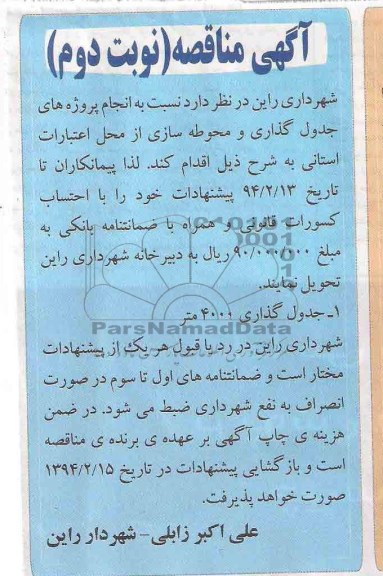 آگهی مناقصه(نوبت دوم)
شهرداری راین در نظر دارد نسبت به انجام پروژه های
جدول گذاری و محوطه سازی از محل اعتبارات
استانی به شرح ذیل اقدام کند. لذا پیمانکاران تا
تاریخ ۹۴/۲/۱۳ پیشنهادات خود را با احتساب
کسورات قانونی و همراه با ضمانتنامه بانکی به
مبلغ ۹۰/۰۰۰/۰۰۰ ریال به دبیرخانه شهرداری راین
تحویل نمایند.
۱ـ جدول گذاری ۴۰۰۰ متر
ParsNamadData
شهرداری راین در رد یا قبول هر یک از پیشنهادات
مختار است و ضمانتنامه های اول تا سوم در صورت
انصراف به نفع شهرداری ضبط می شود. در ضمن
هزینه ی چاپ آگهی بر عهده ی برنده ی مناقصه
است و بازگشایی پیشنهادات در تاریخ ۱۳۹۴/۲/۱۵
صورت خواهد پذیرفت.
علی اکبر زابلی- شهردار راین